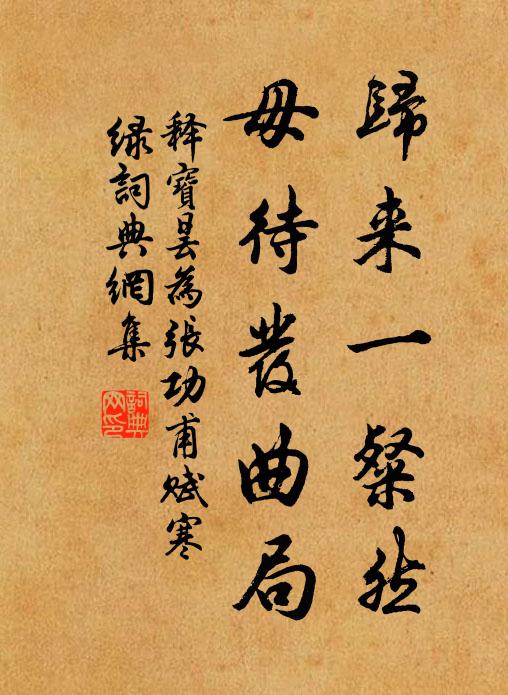 歸来一粲然
毋待發曲局
释寶曇為張功甫赋寒
绿詞典網集
詞典
网印